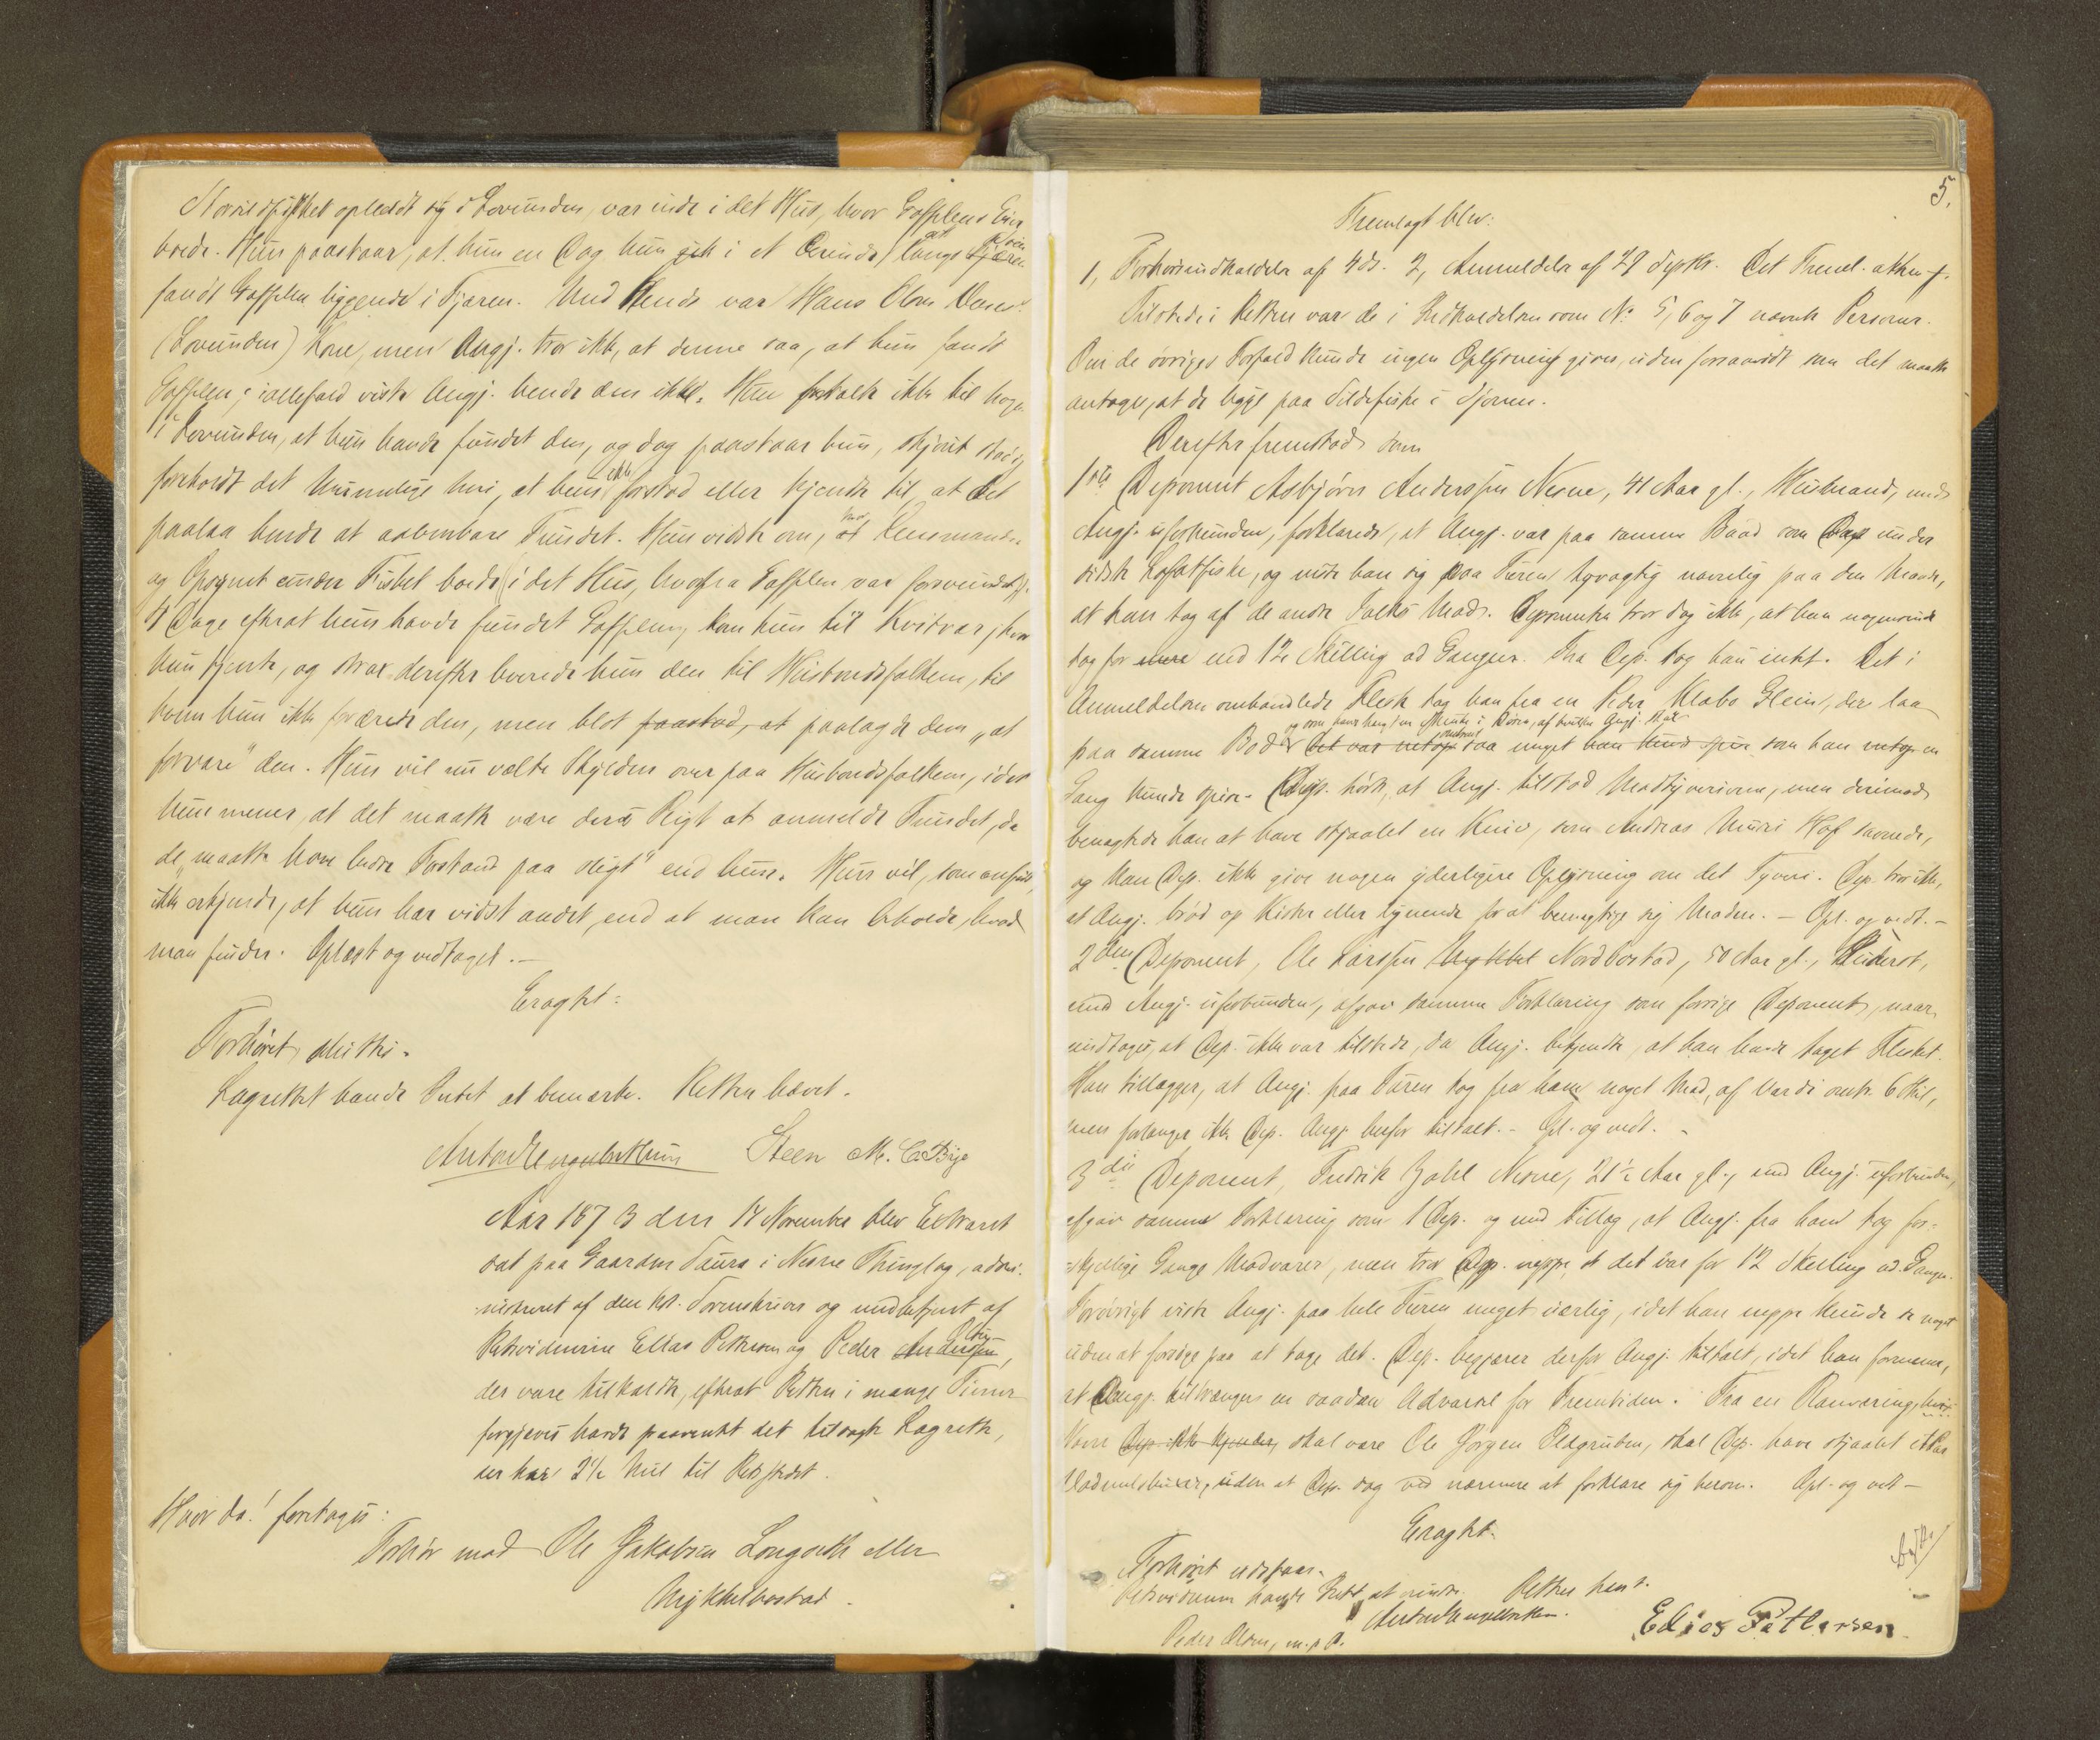 Norsildfisket opholdt sig i Lovunden, var inde i det Hus, hvor Gaffelens Eier
boede. Hun paastaar, at hun en Dag hun gik i et Ærinde langs Fjæren
fandt Gaffelen liggende i Fjæren. Med Hende var Hans Olsen
(Lovunden) Kone, men Angj. tror ikke, at denne saa, at hun fandt
Gaffelen; iallefald viste Angj. hende den ikke. Hun fortalte ikke til nogen
i Lovunden, at hun havde fundet den, og dog paastaar hun, skjønt stadig
foreholdt det Urimelige heri, at hun ikke forstod eller kjendte til, at det
paalaa hende at aabenbare Fundet. Hun vidste om, at Lensmanden
og Opsynet under Fisket boede i det Hus, hvorfra Gaffelen var forsvundet.
4 Dage efterat hun havde fundet Gaffelen, kom hun til Kvitvar, hvor
hun tjente, og strax derefter leverede hun den til Husbondsfolkene, til
hvem hun ikke forærede den, men blot paastod, at paalagde dem "at
forvare" den. Hun vil nu vælte Skylden over paa Husbondsfolkene, idet
hun mener, at det maatte være deres Pligt at anmelde Fundet, da
de "maatte have bedre Forstand paa sligt" end hun. Hun vil, som anført,
ikke erkjende, at hun har vidst andet, end at man kan beholde, hvad
man finder. Oplæst og vedtaget.-
Eragtet:
Forhøret sluttes.
Lagrettet havde Intet at bemærke. Retten hævet.
Steen M. C. Bye
Aar 1873 den 14 November blev Extraret
sat paa Gaarden Saura i Nesne Thinglag, admi-
nistreret af den kst. Sorenskriver og medbetjent af
Retsvidnerne Elias Pettersen og Peder Andersen Olsen,
der vare tilkaldte, efterat Retten i mange Timer
forgjæves havde paaventet det tilsagte Lagrette,
der har 2½ Mil til Retsstedet.
Hvor da! foretoges:
Forhør mod Ole Jakobsen Langseth eller
Mykkelbostad.
5.
Fremlagt blev:
1, Forhørsindkaldelse af 4 ds. 2, Anmeldelse af 29 Septbr. Det Freml. akter-f.
Tilstede i Retten var de i Indkaldelsen som No 5, 6 og 7 nævnte Personer.
Om de øvriges Forfald kunde ingen Oplysning gives, uden forsaavidt som det maatte
antages, at de ligge paa Sildefiske i Sjøen.
Derefter fremstod som
1ste Deponent Asbjørn Andersen Nesne, 41 Aar gl., Husmand, med
Angj. uforbunden, forklarede, at Angj. var paa samme Baad som Dep. under
sidste Lofotfiske, og viste han sig paa Turen tyvagtig navnlig paa den Maade,
at han tog af de andre Folks Mad. Deponenten tror dog ikke, at han nogensinde
tog for mere end 12 Skilling ad Gangen. Fra Dep. tog han intet. Det i
Anmeldelsen omhandlede Flesk tog han fra en Peder Klabo Glein, der laa
og som hang i en i Boden, af hvilke Angj. skar
paa samme Bod det var netop saa meget han kunde spise som han netop en
Gang kunde spise. Dep. hørte, at Angj. tilstod Madtyverierne, men derimod
benægtede han at have stjaalet en Kniv, som Andreas savnede,
og kan Dep. ikke give nogen yderligere Oplysning om det Tyveri. Dep. tror ikke,
at Angj. brød op Kister eller lignende for at bemægtige sig Maden. - Opl. og vedt. -
2den Deponent, Ole Larssen Mykkelbost Nordbostad, 50 Aar gl., Inderst,
med Angj. uforbunden, afgav samme Forklaring som forrige Deponent, naar
undtages, at Dep. ikke var tilstede, da Angj. bekjendte, at han havde taget Flesket.
Han tillægger, at Angj. paa Turen tog fra ham noget Mad, af Værdi omtr. 6 Skil,
men forlanger ikke Dep. Angj. herfor tiltalt. - Opl. og vedt. -
3die Deponent, Fredrik Zahl Nesne, 21½ Aar gl., med Angj. uforbunden,
afgav samme Forklaring som 1 Dep. og med Tillæg, at Angj. fra ham tog for-
skjellige Gange Madvarer, men tror Dep. neppe at det var for 12 Skilling ad Gangen.
Forøvrigt viste Angj. paa hele Turen meget uærlig, idet han neppe kunde se noget
uden at forsøge paa at tage det. Dep. begjærer derfor Angj. tiltalt, idet han formener,
at Angj. tiltrænger en saadan Advarsel for Fremtiden. Fra en Ranværing, hvis
Navn Dep. ikke kjender, skal være Ole Jørgen Oldgruben, skal Dep. have stjaalet et Par
Vadmelsbuxer, uden at Dep. dog ved nærmere at forklare sig herom. Opl. og vedt -
Eragtet:
Forhøret udstaar.
Retsvidnerne havde Intet at erindre. Retten hævt.
Peder Olsen, m. p. P.
Elias Pettersen